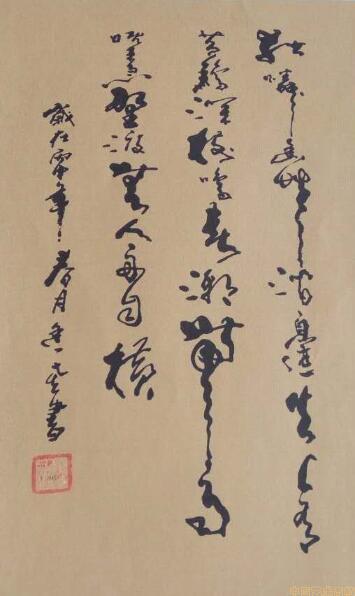 獨憐幽草澗邊生上有
黄鸝深樹鳴春潮帶雨
晚来急野渡無人舟自横
歲在年春月書